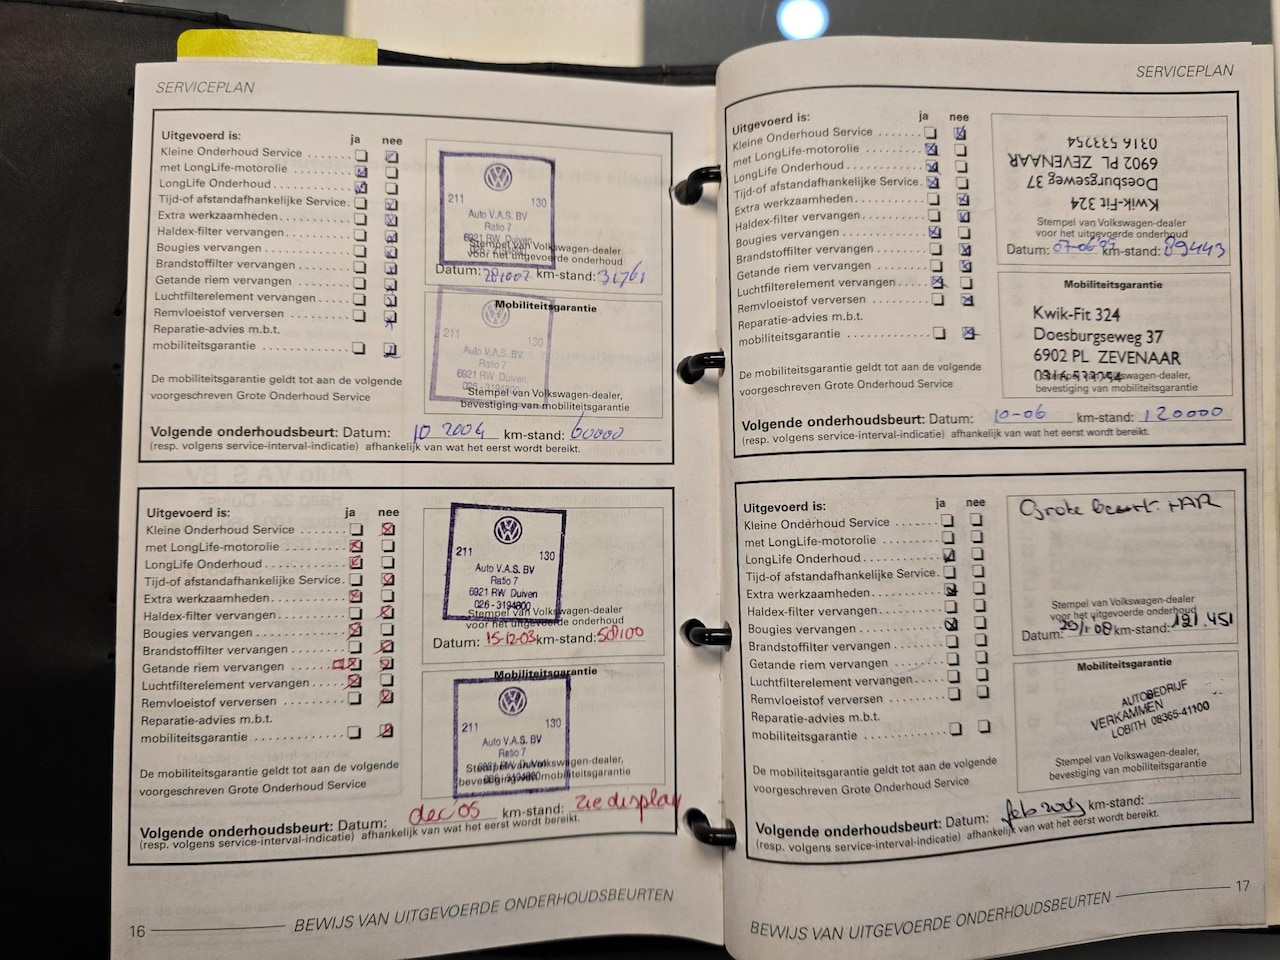 SERVICEPLAN
Uitgevoerd is:
ja nee
Kleine Onderhoud Service
met LongLife-motorolie
LongLife Onderhoud
Tijd-of afstandafhankelijke Service
Extra werkzaamheden
Haldex-filter vervangen
Bougies vervangen
Brandstoffilter vervangen
Getande riem vervangen
Luchtfilterelement vervangen
Remvloeistof verversen
Reparatie-advies m.b.t.
mobiliteitsgarantie
De mobiliteitsgarantie geldt tot aan de volgende
voorgeschreven Grote Onderhoud Service
211 130
Auto V.A.S. BV
Ratio 7
6921 RW Duiven
Stempel van Volkswagen-dealer
voor het uitgevoerde onderhoud
Datum: 281002 km-stand: 31761
Mobiliteitsgarantie
211 130
Auto V.A.S. BV
Ratio 7
6921 RW Duiven
026-3194800
Stempel van Volkswagen-dealer,
bevestiging van mobiliteitsgarantie
Volgende onderhoudsbeurt: Datum: 10 2004 km-stand: 60000
(resp. volgens service-interval-indicatie) afhankelijk van wat het eerst wordt bereikt.
Uitgevoerd is:
ja nee
Kleine Onderhoud Service
met LongLife-motorolie
LongLife Onderhoud
Tijd-of afstandafhankelijke Service
Extra werkzaamheden
Haldex-filter vervangen
Bougies vervangen
Brandstoffilter vervangen
Getande riem vervangen
Luchtfilterelement vervangen
Remvloeistof verversen
Reparatie-advies m.b.t.
mobiliteitsgarantie
De mobiliteitsgarantie geldt tot aan de volgende
voorgeschreven Grote Onderhoud Service
211 130
Auto V.A.S. BV
Ratio 7
6921 RW Duiven
026-3194800
Stempel van Volkswagen-dealer
voor het uitgevoerde onderhoud
Datum: 15-12-03 km-stand: 58100
Mobiliteitsgarantie
211 130
Auto V.A.S. BV
Ratio 7
Stempel van Volkswagen-dealer,
bevestiging van mobiliteitsgarantie
Volgende onderhoudsbeurt: Datum: dec '05 km-stand: zie display
(resp. volgens service-interval-indicatie) afhankelijk van wat het eerst wordt bereikt.
16 BEWIJS VAN UITGEVOERDE ONDERHOUDSBEURTEN
SERVICEPLAN
Uitgevoerd is:
ja nee
Kleine Onderhoud Service
met LongLife-motorolie
LongLife Onderhoud
Tijd-of afstandafhankelijke Service
Extra werkzaamheden
Haldex-filter vervangen
Bougies vervangen
Brandstoffilter vervangen
Getande riem vervangen
Luchtfilterelement vervangen
Remvloeistof verversen
Reparatie-advies m.b.t.
mobiliteitsgarantie
De mobiliteitsgarantie geldt tot aan de volgende
voorgeschreven Grote Onderhoud Service
Kwik-Fit 324
Doesburgseweg 37
6902 PL ZEVENAAR
0316 533254
Stempel van Volkswagen-dealer
voor het uitgevoerde onderhoud
Datum: km-stand: 89443
Mobiliteitsgarantie
Kwik-Fit 324
Doesburgseweg 37
6902 PL ZEVENAAR
0316 533254
Stempel van Volkswagen-dealer,
bevestiging van mobiliteitsgarantie
Volgende onderhoudsbeurt: Datum: 10-06 km-stand: 120000
(resp. volgens service-interval-indicatie) afhankelijk van wat het eerst wordt bereikt.
Uitgevoerd is:
ja nee
Kleine Onderhoud Service
met LongLife-motorolie
LongLife Onderhoud
Tijd-of afstandafhankelijke Service
Extra werkzaamheden
Haldex-filter vervangen
Bougies vervangen
Brandstoffilter vervangen
Getande riem vervangen
Luchtfilterelement vervangen
Remvloeistof verversen
Reparatie-advies m.b.t.
mobiliteitsgarantie
De mobiliteitsgarantie geldt tot aan de volgende
voorgeschreven Grote Onderhoud Service
Grote beurt
Stempel van Volkswagen-dealer
voor het uitgevoerde onderhoud
Datum: km-stand: 121.451
Mobiliteitsgarantie
AUTOBEDRIJF
VERKAMMEN
LOBITH 08365-41100
Stempel van Volkswagen-dealer,
bevestiging van mobiliteitsgarantie
Volgende onderhoudsbeurt: Datum: feb km-stand:
(resp. volgens service-interval-indicatie) afhankelijk van wat het eerst wordt bereikt.
BEWIJS VAN UITGEVOERDE ONDERHOUDSBEURTEN 17